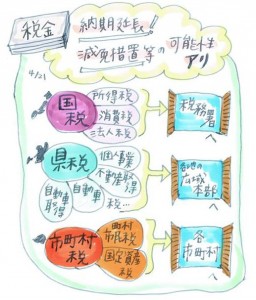 税金
納期延長!!
減免措置等の可能性
アリ
4/21
国税
所得税
消費税
法人税
税務署
へ
県税
個人事業
不動産取得
自動車
取得
自動車
税…
各地の
広域
本部
へ
市町村
税
町村
市民税
固定資産
税
各
市町村
へ